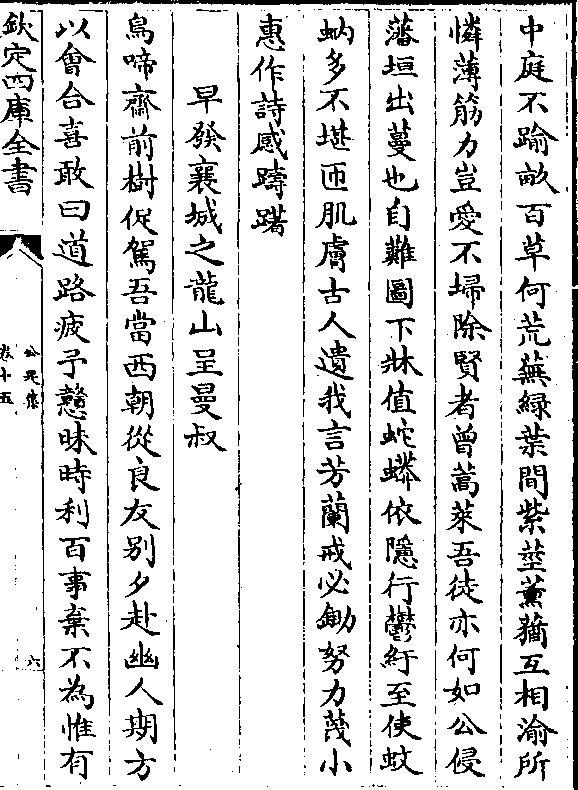 中庭不踰畝百草何荒蕪緑葉間紫莖薰蕕互相渝所
憐薄筋力豈愛不埽除賢者曽蒿萊吾徒亦何如公侵
藩垣出蔓也自難圖下牀值蛇蠎依隱行鬱紆至使蚊
蚋多不堪匝肌膚古人遺我言芳蘭戒必鋤努力蔑小
惠作詩感躊躇
早發襄城之龍山呈曼叔
鳥啼齋前樹促駕吾當西朝從良友别夕赴幽人期方
以會合喜敢曰道路疲予戇昧時利百事棄不為惟有
欽定四庫全書
公是集
卷十五
六